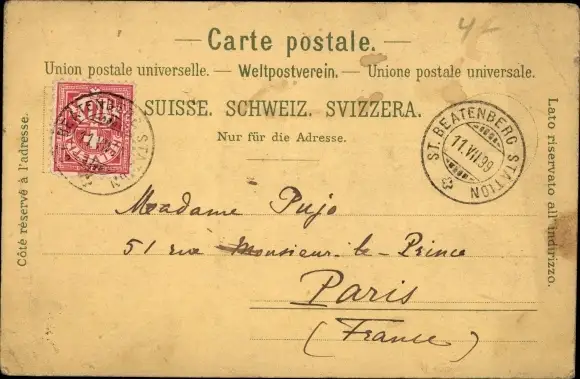 4.-
— Carte postale. —
Union postale universelle. — Weltpostverein. — Unione postale universale.
SUISSE. SCHWEIZ. SVIZZERA.
Nur für die Adresse.
Côté réservé à l'adresse.
Lato riservato all'indirizzo.
ST. BEATENBERG STATION
11.VII.99
Madame Pujo
51 rue Monsieur-le-Prince
Paris
(France)